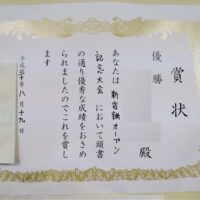 賞状
優勝
殿
あなたは 新店舗オープン
記念大会 において頭書
の通り優秀な成績をおさめ
られましたのでこれを賞し
ます
平成三十年八月十九日